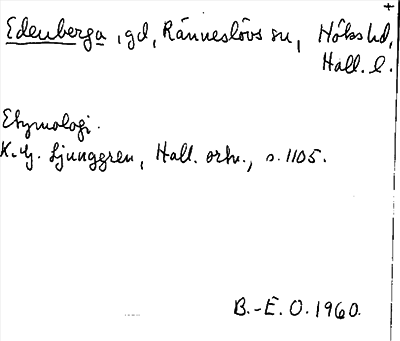 Edenberga, gd, Ränneslövs sn, Höks hd,
Hall. l.
Etymologi.
K. G. Ljunggren, Hall. ortn., s. 1105.
B.-E. O. 1960.